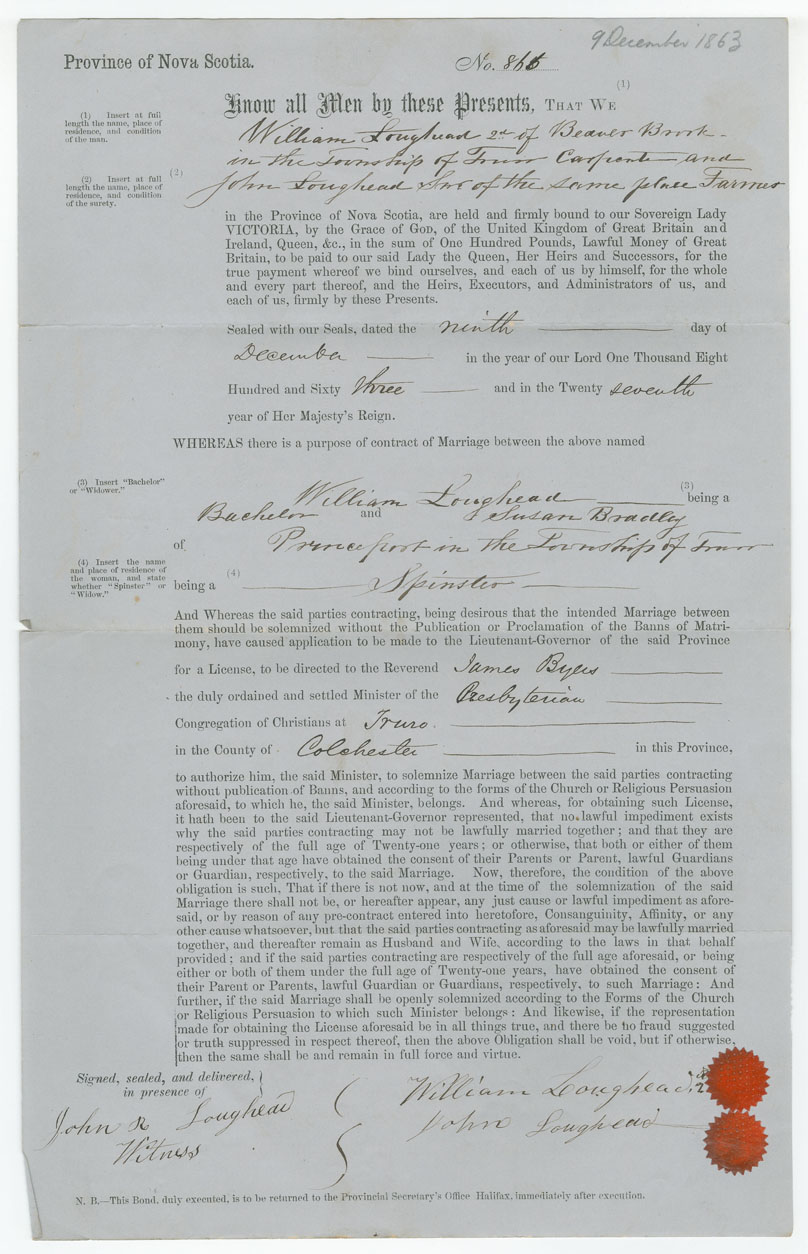 9 December 1863
Province of Nova Scotia.
No.
(1)
Know all Men by these Presents, THAT WE
(1) Insert at full
length the name, place of
residence, and condition
of the man.
William Loughead 2nd of Beaver Brook
in the Township of Truro Carpenter and
(2) Insert at full
length the name, place of
residence, and condition
of the surety.
(2)
John Loughead Snr of the same place Farmer
in the Province of Nova Scotia, are held and firmly bound to our Sovereign Lady
VICTORIA, by the Grace of GOD, of the United Kingdom of Great Britain and
Ireland, Queen, &c., in the sum of One Hundred Pounds, Lawful Money of Great
Britain, to be paid to our said Lady the Queen, Her Heirs and Successors, for the
true payment whereof we bind ourselves, and each of us by himself, for the whole
and every part thereof, and the Heirs, Executors, and Administrators of us, and
each of us, firmly by these Presents.
Sealed with our Seals, dated the ninth day of
December in the year of our Lord One Thousand Eight
Hundred and Sixty three and in the Twenty seventh
year of Her Majesty's Reign.
WHEREAS there is a purpose of contract of Marriage between the above named
(3) Insert "Bachelor"
or "Widower."
William Loughead (3) being a
Bachelor and Susan Bradley
of Princeport in the Township of Truro
(4) Insert the name
and place of residence of
the woman, and state
whether "Spinster" or
"Widow."
being a (4) Spinster
And Whereas the said parties contracting, being desirous that the intended Marriage between
them should be solemnized without the Publication or Proclamation of the Banns of Matri-
mony, have caused application to be made to the Lieutenant-Governor of the said Province
for a License, to be directed to the Reverend James Byers
the duly ordained and settled Minister of the Presbyterian
Congregation of Christians at Truro.
in the County of Colchester in this Province,
to authorize him, the said Minister, to solemnize Marriage between the said parties contracting
without publication of Banns, and according to the forms of the Church or Religious Persuasion
aforesaid, to which he, the said Minister, belongs. And whereas, for obtaining such License,
it hath been to the said Lieutenant-Governor represented, that no lawful impediment exists
why the said parties contracting may not be lawfully married together; and that they are
respectively of the full age of Twenty-one years; or otherwise, that both or either of them
being under that age have obtained the consent of their Parents or Parent, lawful Guardians
or Guardian, respectively, to the said Marriage. Now, therefore, the condition of the above
obligation is such, That if there is not now, and at the time of the solemnization of the said
Marriage there shall not be, or hereafter appear, any just cause or lawful impediment as afore-
said, or by reason of any pre-contract entered into heretofore, Consanguinity, Affinity, or any
other cause whatsoever, but that the said parties contracting as aforesaid may be lawfully married
together, and thereafter remain as Husband and Wife, according to the laws in that behalf
provided; and if the said parties contracting are respectively of the full age aforesaid, or being
either or both of them under the full age of Twenty-one years, have obtained the consent of
their Parent or Parents, lawful Guardian or Guardians, respectively, to such Marriage: And
further, if the said Marriage shall be openly solemnized according to the Forms of the Church
or Religious Persuasion to which such Minister belongs: And likewise, if the representation
made for obtaining the License aforesaid be in all things true, and there be no fraud suggested
or truth suppressed in respect thereof, then the above Obligation shall be void, but if otherwise,
then the same shall be and remain in full force and virtue.
Signed, sealed, and delivered,
in presence of
John R Loughead
Witness
William Loughead 2nd
John Loughead
N. B.—This Bond, duly executed, is to be returned to the Provincial Secretary's Office Halifax, immediately after execution.